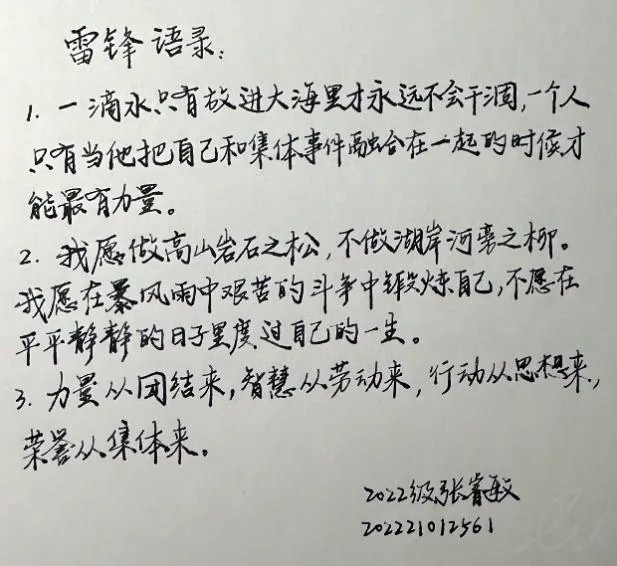 雷锋语录:
1. 一滴水只有放进大海里才永远不会干涸,一个人
只有当他把自己和集体事件融合在一起的时候才
能最有力量。
2. 我愿做高山岩石之松,不做湖岸河旁之柳。
我愿在暴风雨中艰苦的斗争中锻炼自己,不愿在
平平静静的日子里度过自己的一生。
3. 力量从团结来,智慧从劳动来,行动从思想来,
荣誉从集体来。
2022级张睿
202221012561